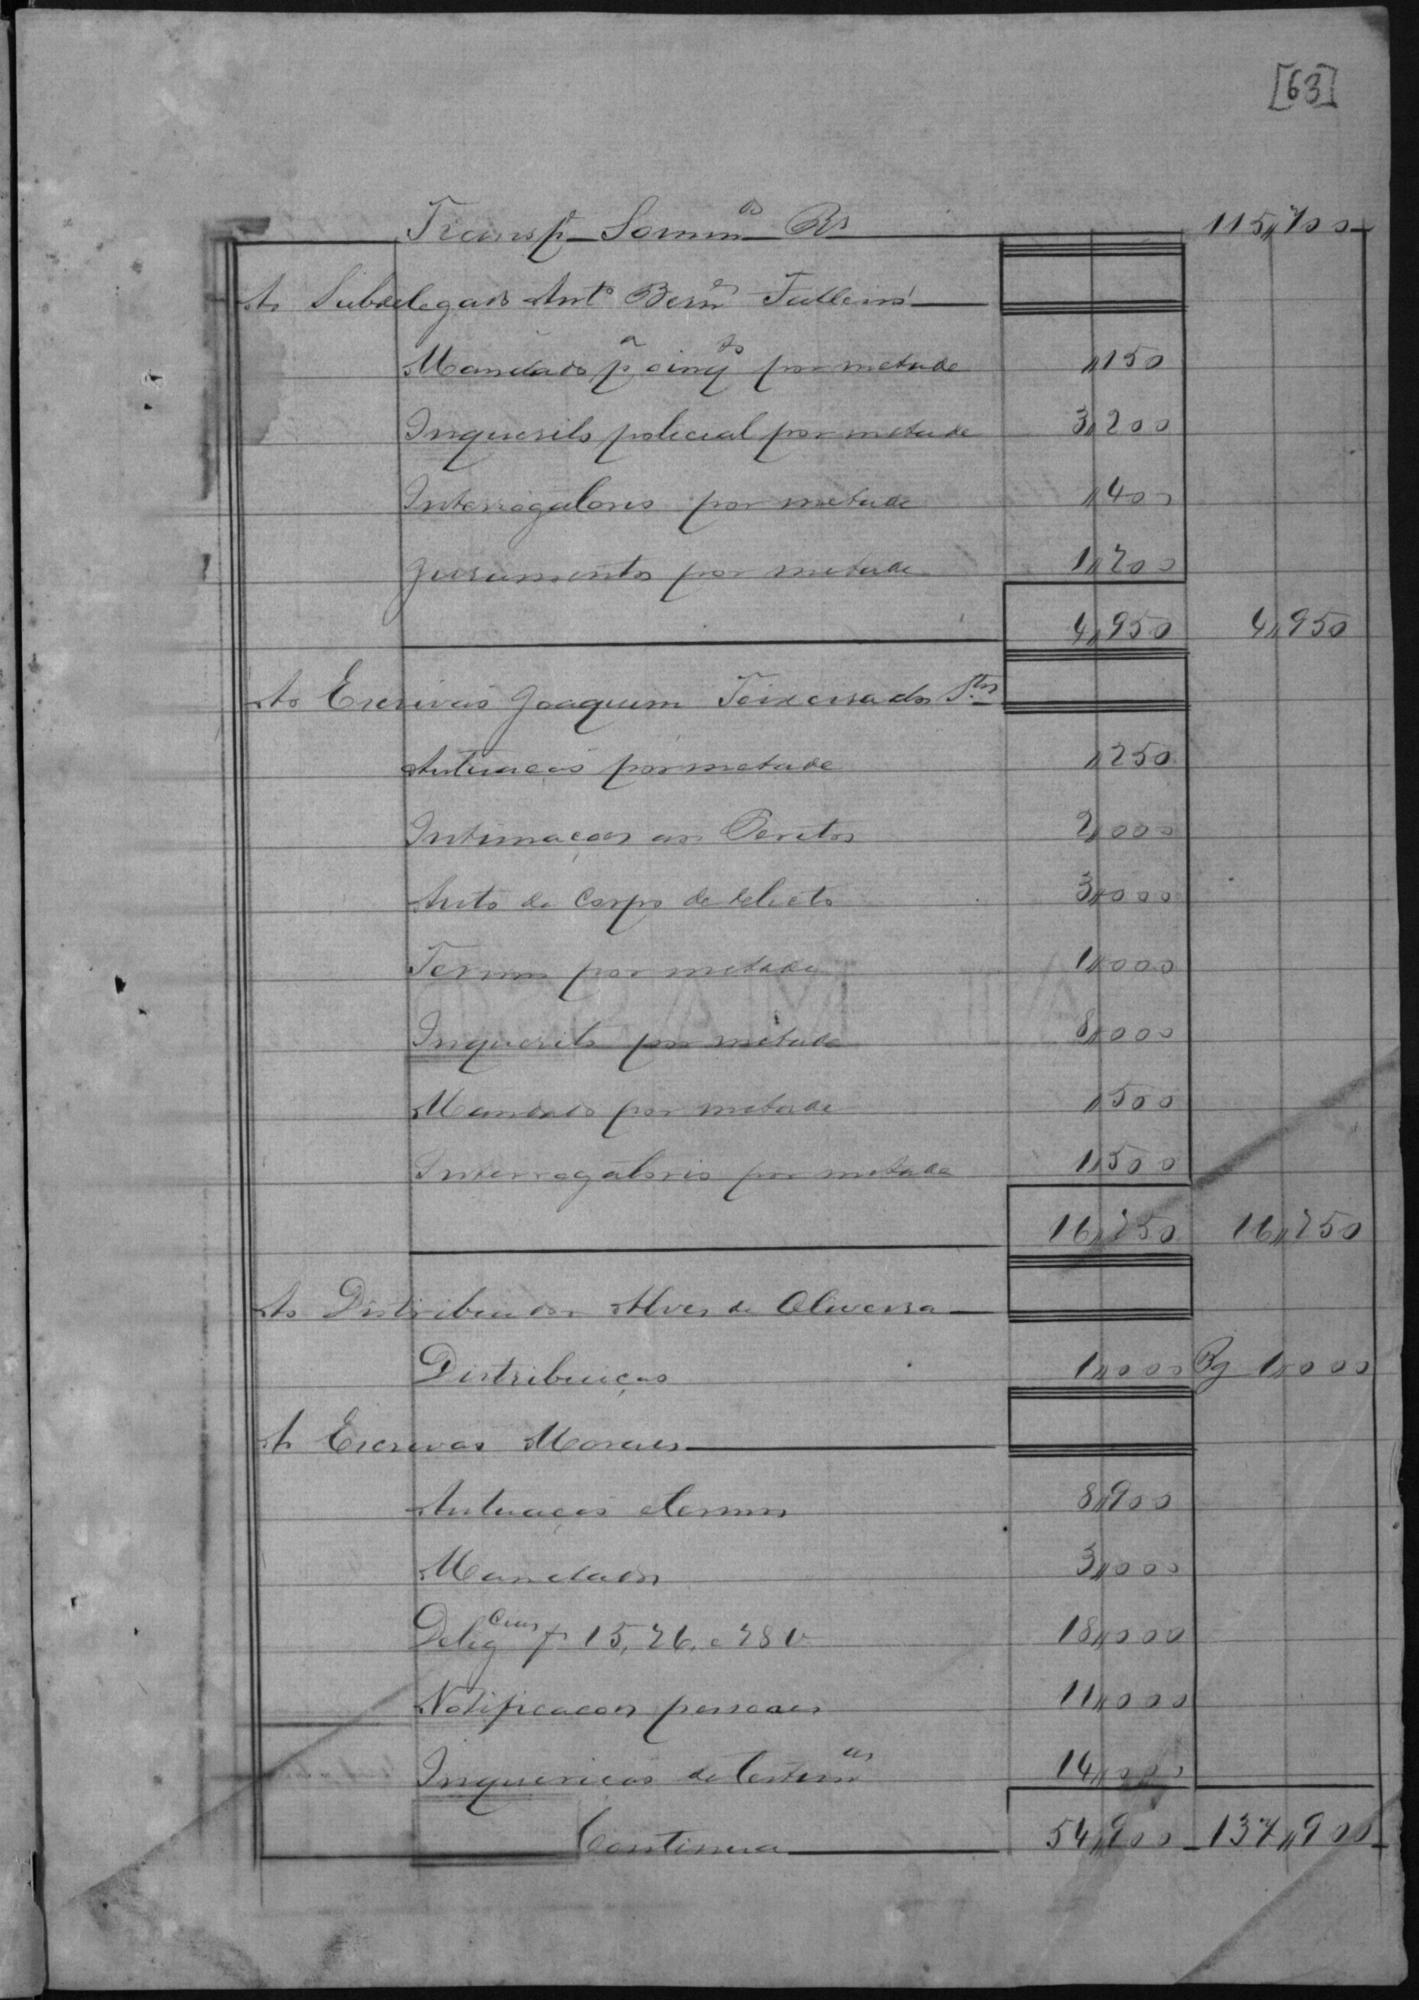 [63]
Transp. Somm.as Rs 115,,700
Ao Subdelegado Anto Bern.es
Mandado p.a o inq.to por metade ,,150
Inquerito policial por metade 3,,200
Interrogatorio por metade ,,400
Juramentos por metade 1,,200
4,,950 4,,950
Ao Escrivão Joaquim Teixeira dos S.tos
Autuação por metade ,,250
Intimações aos Peritos 2,,000
Auto de Corpo de delicto 3,,000
Termos por metade 1,,000
Inquerito por metade 8,,000
Mandado por metade ,,500
Interrogatorio por metade 1,,500
16,,250 16,,250
Ao Distribuidor Alves de Oliveira
Distribuiçao 1,,000 Pg 1,,000
Ao Escrivão Moraes
Autuação e termos 8,,900
Mandados 3,,000
Delig.cias f. 15, 26, e 28 v 18,,000
Notificacoes pessoaes 11,,000
Inquericao de testem.as 14,,000
Continua 54,,900 137,,900